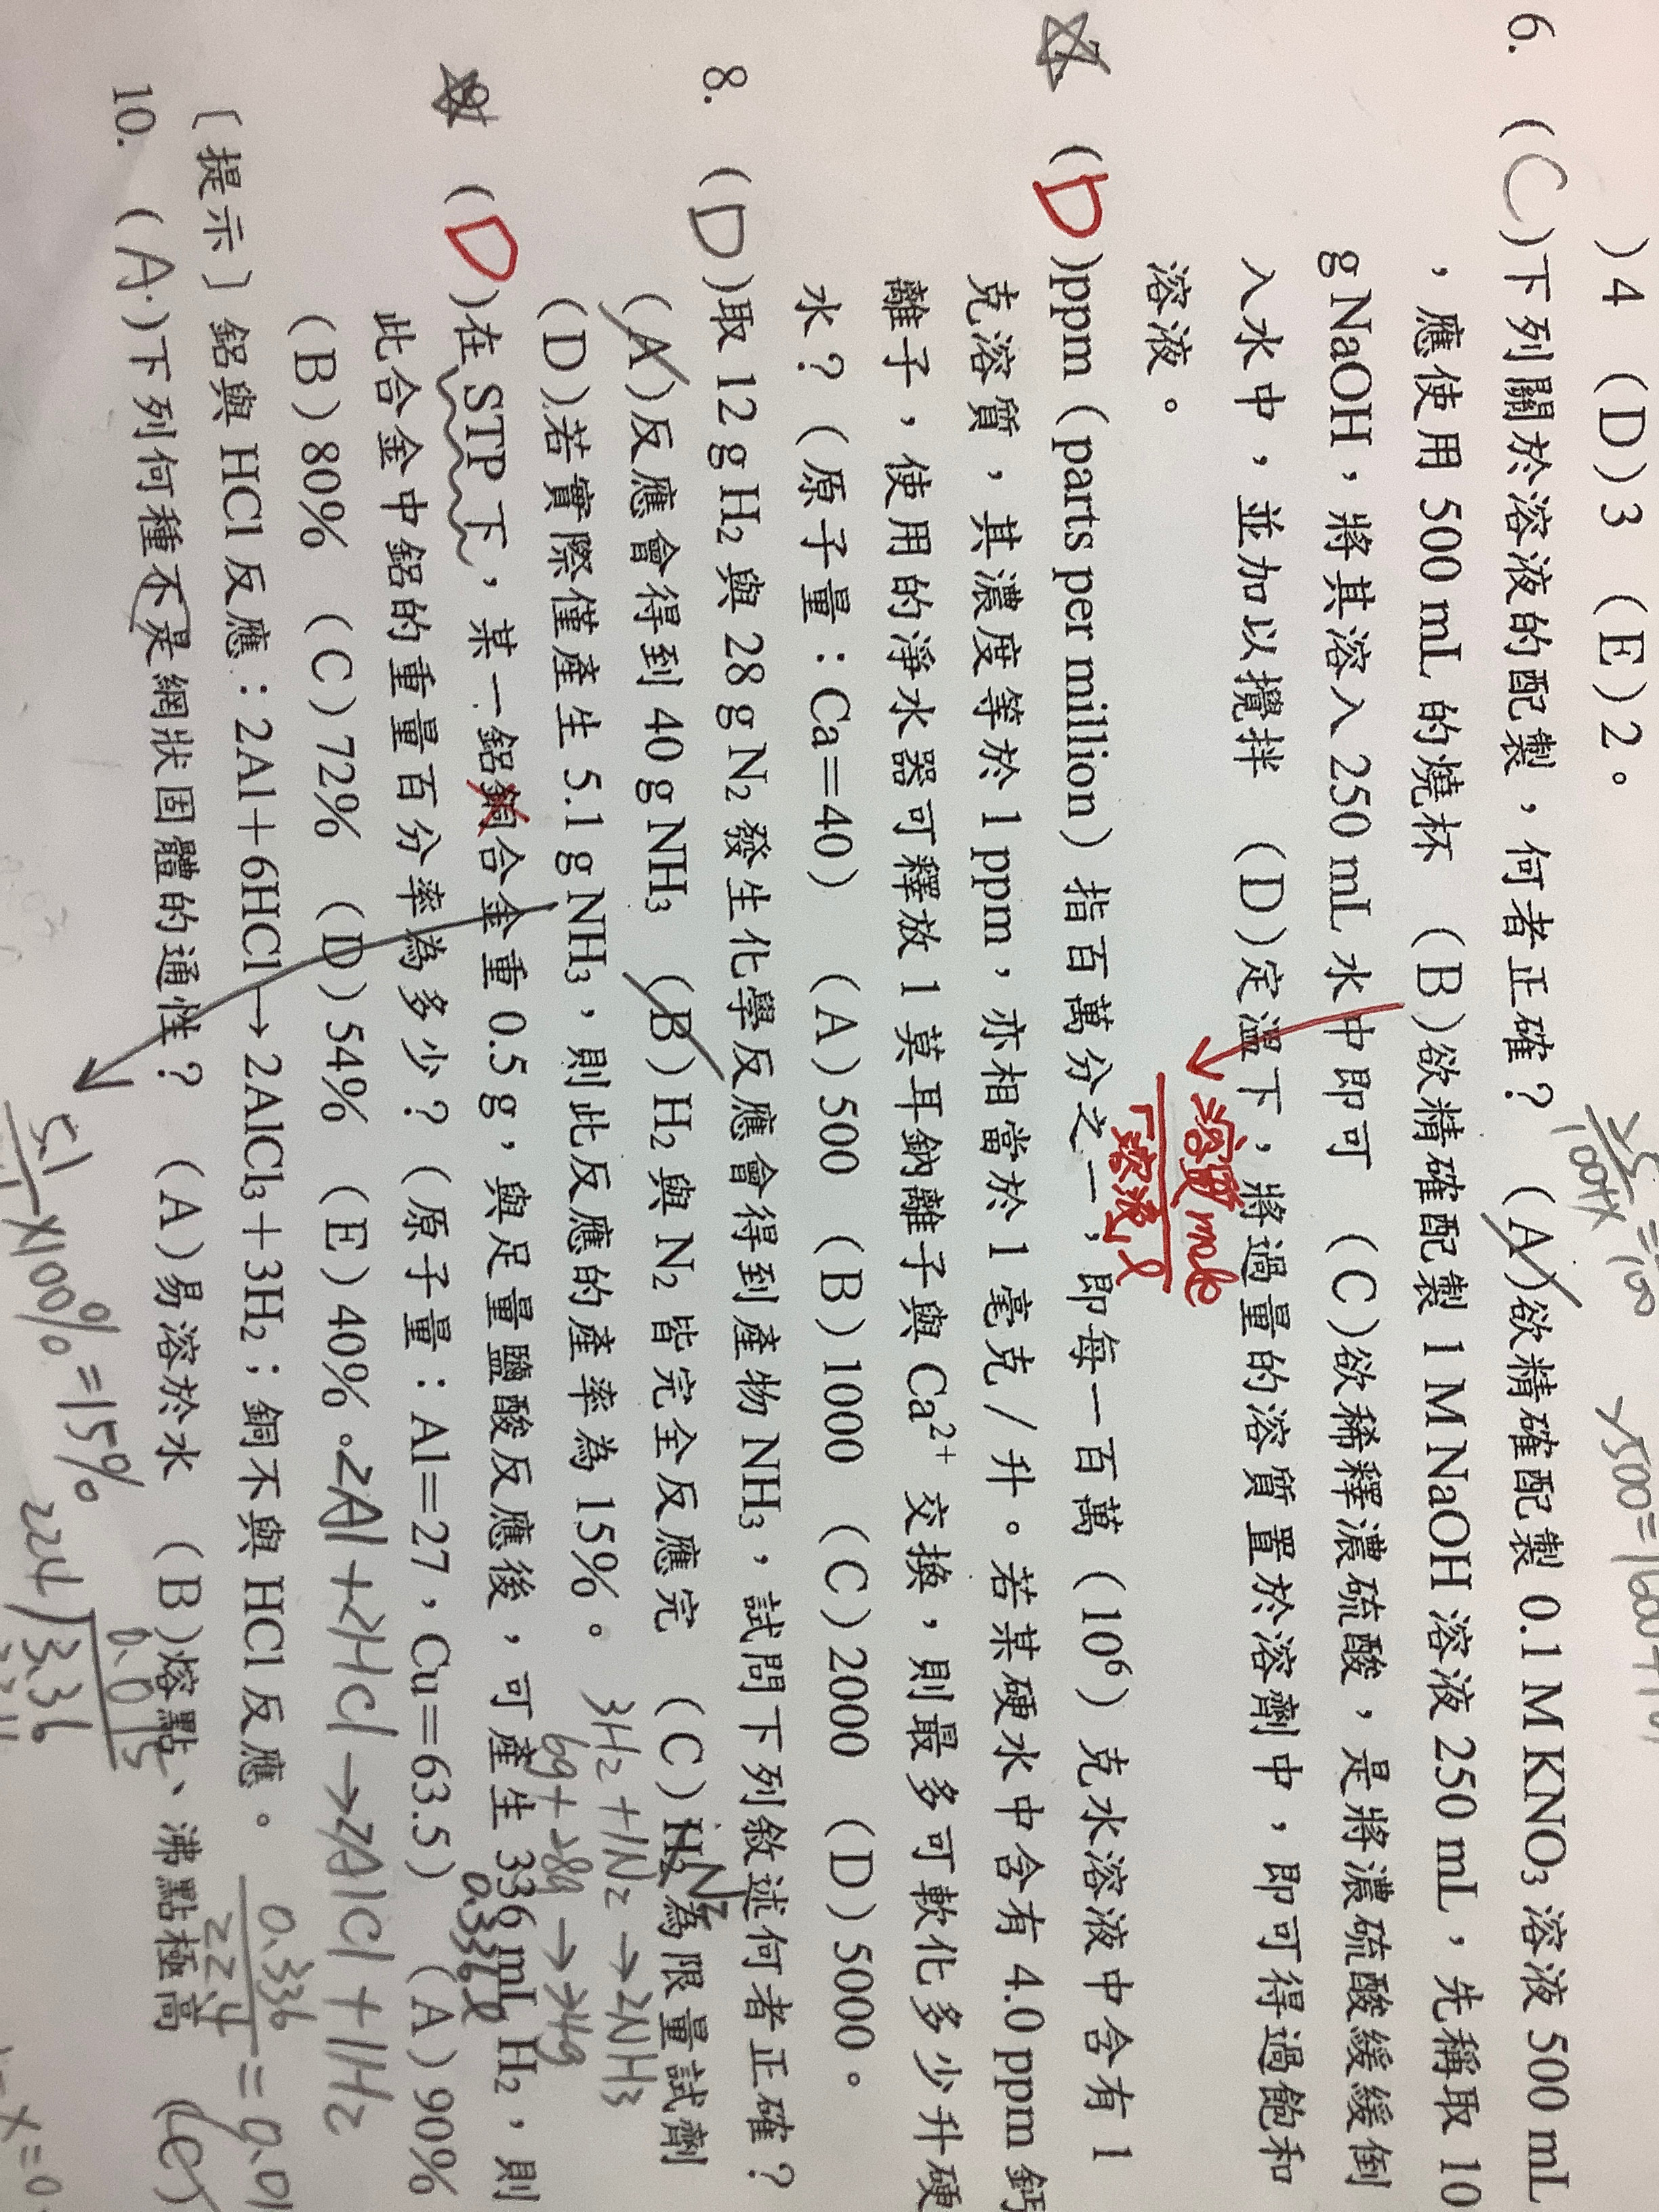 )4 (D)3 (E)2。
6. (C)下列關於溶液的配製，何者正確？ (A)欲精確配製 0.1 M KNO₃ 溶液 500 mL
，應使用 500 mL 的燒杯 (B)欲精確配製 1 M NaOH 溶液 250 mL，先稱取 10
g NaOH，將其溶入 250 mL 水中即可 (C)欲稀釋濃硫酸，是將濃硫酸緩緩倒
入水中，並加以攪拌 (D)定溫下，將過量的溶質置於溶劑中，即可得過飽和
溶液。
溶質 mole
(D)ppm（parts per million）指百萬分之一，即每一百萬（10⁶）克水溶液中含有 1
克溶質，其濃度等於 1 ppm，亦相當於 1 毫克 / 升。若某硬水中含有 4.0 ppm 鈣
離子，使用的淨水器可釋放 1 莫耳鈉離子與 Ca²⁺ 交換，則最多可軟化多少升硬
水？（原子量：Ca＝40） (A)500 (B)1000 (C)2000 (D)5000。
8. (D)取 12 g H₂ 與 28 g N₂ 發生化學反應會得到產物 NH₃，試問下列敘述何者正確？
(A)反應會得到 40 g NH₃ (B)H₂ 與 N₂ 皆完全反應完 (C)H₂ 為限量試劑
N₂
(D)若實際僅產生 5.1 g NH₃，則此反應的產率為 15%。
3H₂ + 1N₂ → 2NH₃
6g + 28g → 34g
9. (D)在 STP 下，某一鋁銅合金重 0.5 g，與足量鹽酸反應後，可產生 336 mL H₂，則
0.336ℓ
此合金中鋁的重量百分率為多少？（原子量：Al＝27，Cu＝63.5） (A)90%
(B)80% (C)72% (D)54% (E)40%。
2Al + 2HCl → 2AlCl + 1H₂
〔提示〕鋁與 HCl 反應：2Al＋6HCl → 2AlCl₃＋3H₂；銅不與 HCl 反應。
0.336
22.4
10. (A)下列何種不是網狀固體的通性？ (A)易溶於水 (B)熔點、沸點極高
5.1
×100% = 15%
0.015
224 3.36